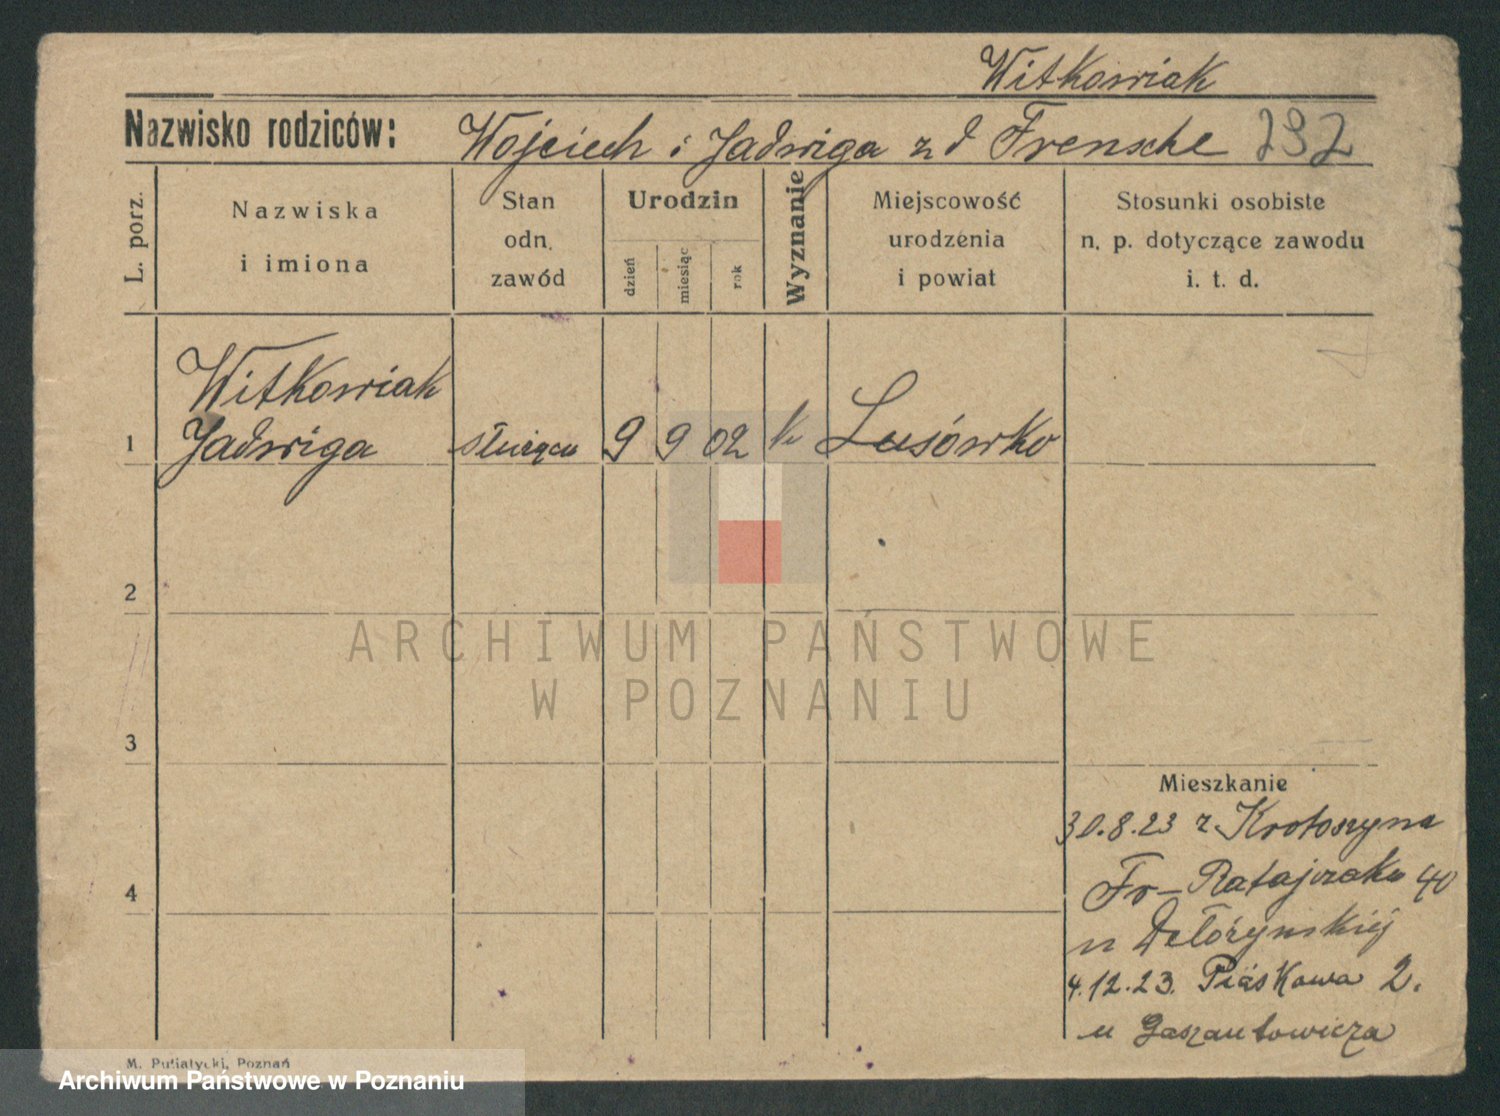 Witkowiak
Nazwisko rodziców: Wojciech i Jadwiga z d Frensche 292
L. porz.
Nazwiska
i imiona
Stan
odn.
zawód
Urodzin
dzień
miesiąc
rok
Wyznanie
Miejscowość
urodzenia
i powiat
Stosunki osobiste
n. p. dotyczące zawodu
i. t. d.
Witkowiak
1 Jadwiga służąca 9 9 02 k Lusówko
2
3
4
Mieszkanie
30.8.23 z Krotoszyna
Fr-Ratajczaka 40
u
4.12.23. Piaskowa 2.
u
M. Putiatycki, Poznań
ARCHIWUM PAŃSTWOWE
W POZNANIU
Archiwum Państwowe w Poznaniu